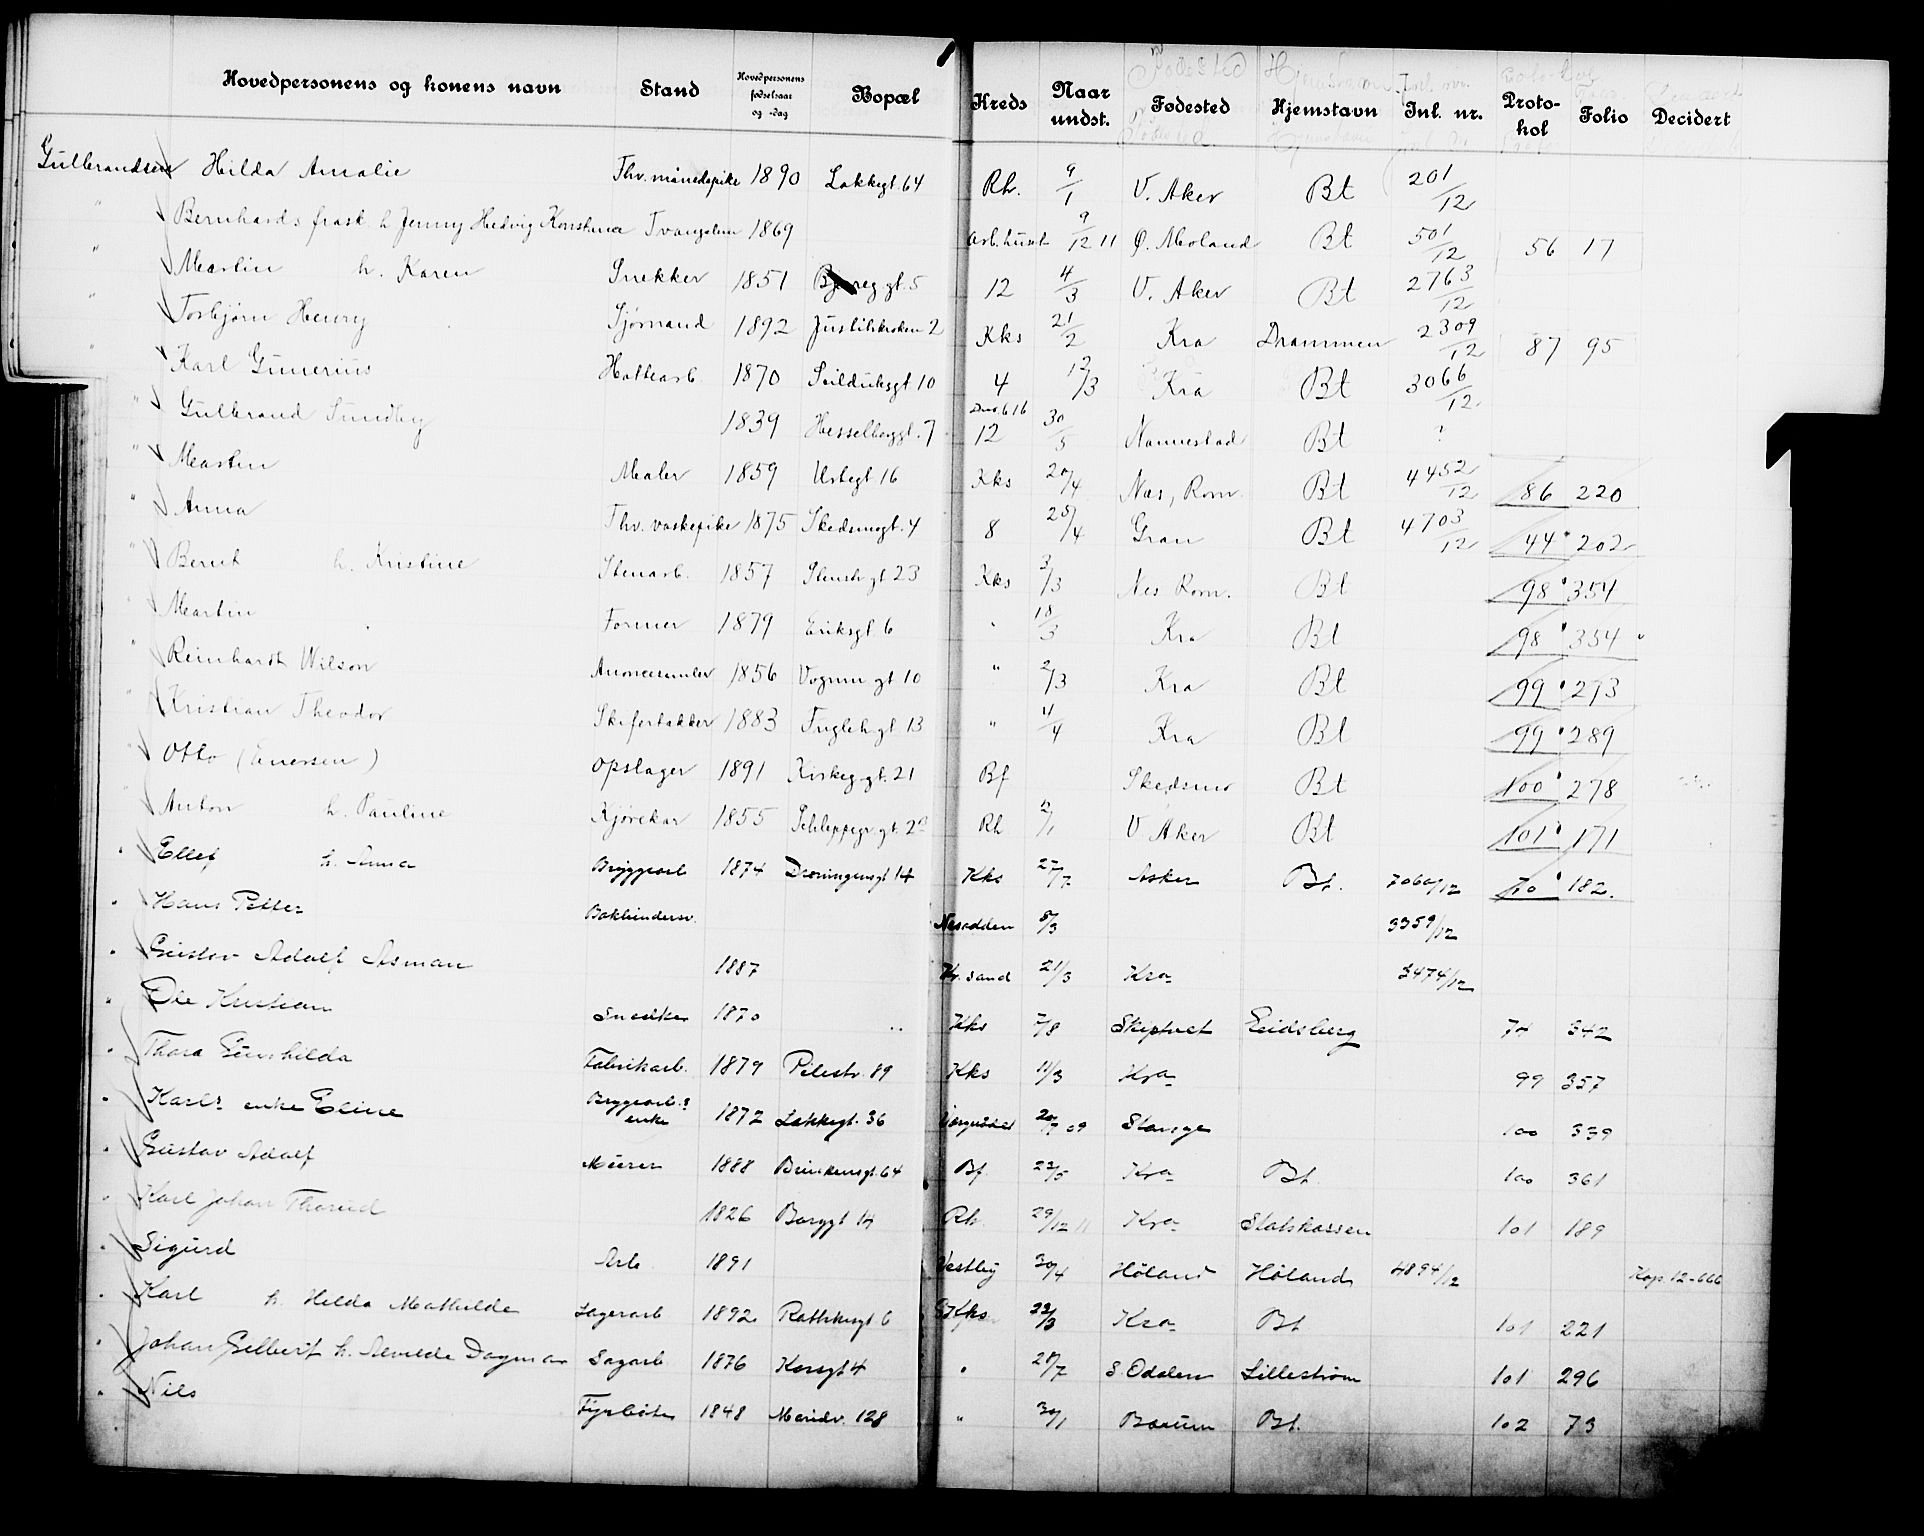 Hovedpersonens og konens navn Stand Hovedpersonens fødselsaar og -dag Bopæl Kreds Naar undst. Fødested Hjemstavn Inl. nr. Proto-kol Folio Decidert
Gulbrandsen Hilda Amalie Fhv. månedspike 1890 Lakkegt. 64 Rh. 9/1 V. Aker Bt 201/12
" Bernhards frask. h. Jenny Hedvig Konstance Tvangslem 1869 Arb.huset 9/12 11 Ø. Moland Bt 501/12 56 17
" Martin h. Karen Snekker 1851 Bjeregt. 5 12 4/3 V. Aker Bt 2763/12
" Torbjørn Henry Sjømand 1892 Justitskroken 2 Kks 21/2 Kra Drammen 2309/12 87 95
" Karl Gunerius Hattearb. 1870 Seilduksgt 10 4 12/3 Kra Bt 3066/12
" Gulbrand Sundby 1839 Hesselbeggt. 7 12 30/5 Nannestad Bt ?
" Martin Maler 1859 Urtegt 16 Kks 20/4 Nes, Rom. Bt 4452/12 86 220
" Anna Fhv. vaskepike 1875 Skedsmogt. 4 8 25/4 Gran Bt 4703/12 44 202
" Bernt h. Kristine Stenarb. 1857 Stenstr gt 23 Kks 3/3 Nes Rom. Bt 98 354
" Martin Former 1879 Eriksgt. 6 " 18/3 Kra Bt 98 354
" Reinhardt Wilson Anoncesamler 1856 Vognm gt 10 " 2/3 Kra Bt 99 273
" Kristian Theodor Skifertækker 1883 Fugleh gt 13 " 11/4 Kra Bt 99 289
" Otto (Enersen) Opslager 1891 Kirkeg gt. 21 Bf Skedsmo Bt 100 278
" Anton h. Pauline Kjørekar 1855 Schleppegr gt. 2 Rh 12/1 V Aker Bt 101 171
" Ellef h. Anna Bryggearb 1874 Dronningensgt 14 Kks 27/7 Asker Bt. 7060/12 70 182.
" Hans Petter Bokbindersv. Nesodden 8/3 3359/12
" Gustav Adolf Asman 1887 Kr.sand 21/3 Kra 3474/12
" Ole Kristian Snedker 1870 Kks 7/8 Skiptvet Eidsberg 74 342
" Thora Gunhilda Fabrikarb. 1879 Pilestr. 89 Kks 11/3 Kra 99 357
" Karls enke Eline Bryggearb.s enke 1872 Lakkegt. 36 20/7 09 Stange 100 339
" Gustav Adolf Murer 1888 Brinkensgt. 64 Bf. 22/5 Kra Bt. 100 361
" Karl Johan Thorud 1826 Borggt 14 Rh. 29/12 11 Kra Statskassen 101 189
" Sigurd Arb. 1891 Vestby 30/4 Høland Høland 4894/12 Kop. 12-666
" Karl h. Hilda Mathilde Lagerarb 1892 Rathkesgt 6 Kks 22/3 Kra Bt 101 221
" Johan Gilbert h. Alvilde Dagmar Sagarb 1876 Korsgt 4 " 25/7 S. Odalen Lillestrøm 101 296
" Nils Fyrbøter 1848 Maridv. 128 " 30/1 Bærum Bt. 102 73